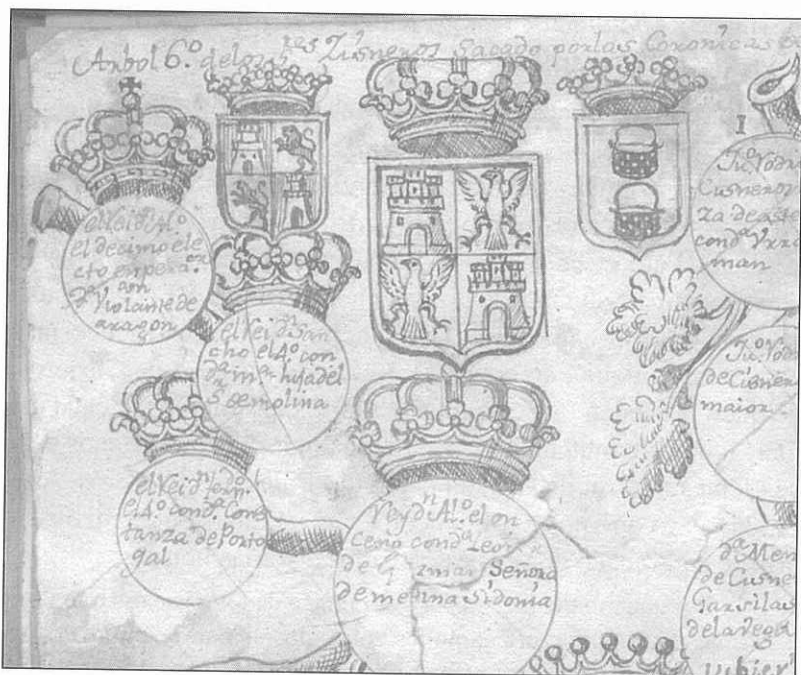 Arbol 6.º de los s.res Zisneros sacado por las Coronicas
el Rei dn Al.º
el decimo ele
cto enpera.or
con
D.ª Violante de
aragon
el Rei dn San
cho el 4.º con
dª m.ª hija del
s de molina
el Rei dn fern.do
el 4.º con d.ª Cons
tanza de Portu
gal
Rey dn Al.º el on
ceno con dª Leonor
de Guzman Señora
de medina Sidonia
I
Ju.º Rodri
Cisneros
con dª
man
Ju.º Rodri
de Cisneros
maior
dª Men
de Cisne
Garsilas
de la vega